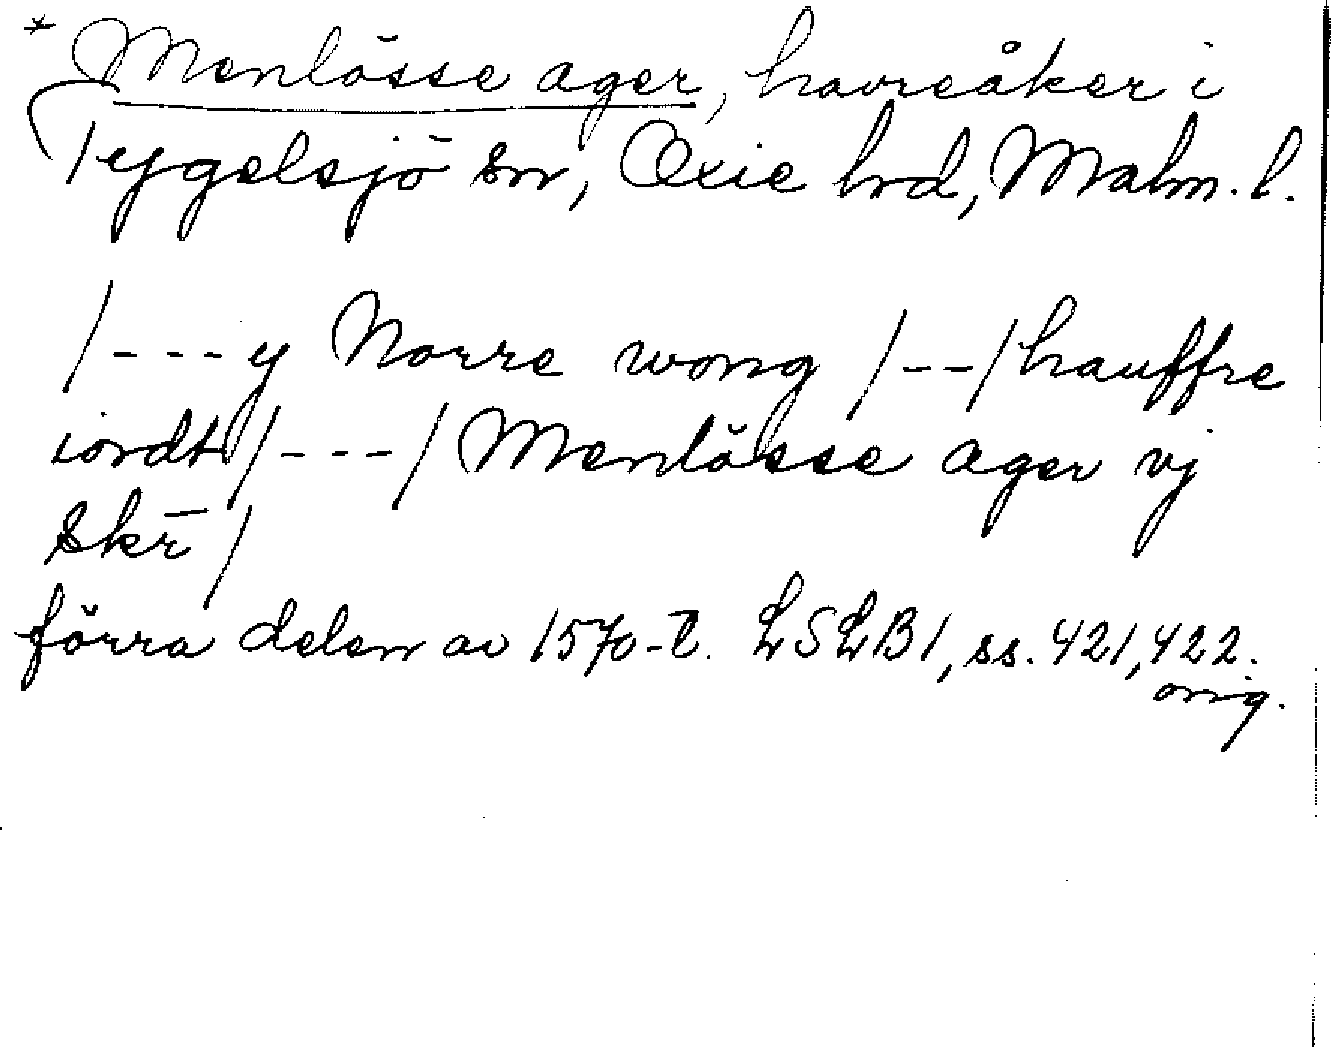 * Menlösse ager, havreåker i
Tygelsjö sn, Oxie hd, Malm. l.
/---y Norre wong /--/ hauffre
iordt/---/ Menlösse ager vj
skr̄/
förra delen av 1570-t. LSLB1, ss. 421, 422.
orig.